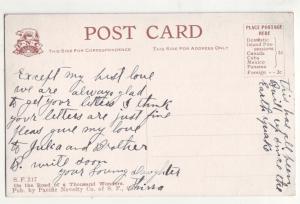 POST CARD
THIS SIDE FOR CORRESPONDENCE
THIS SIDE FOR ADDRESS ONLY
PLACE POSTAGE
HERE
Domestic
Island Pos-
sessions
Canada
Cuba
Mexico
Panama
Foreign
Except my best love
we are always glad
to get your letters I think
your letters are just fine
please give my love
to Julia and Brother
write soon
your loving daughter
This has all been
Built up since the
Earth quake
S.F. 217
On the Road of a Thousand Wonders.
Pub. by Pacific Novelty Co. of S. F.,